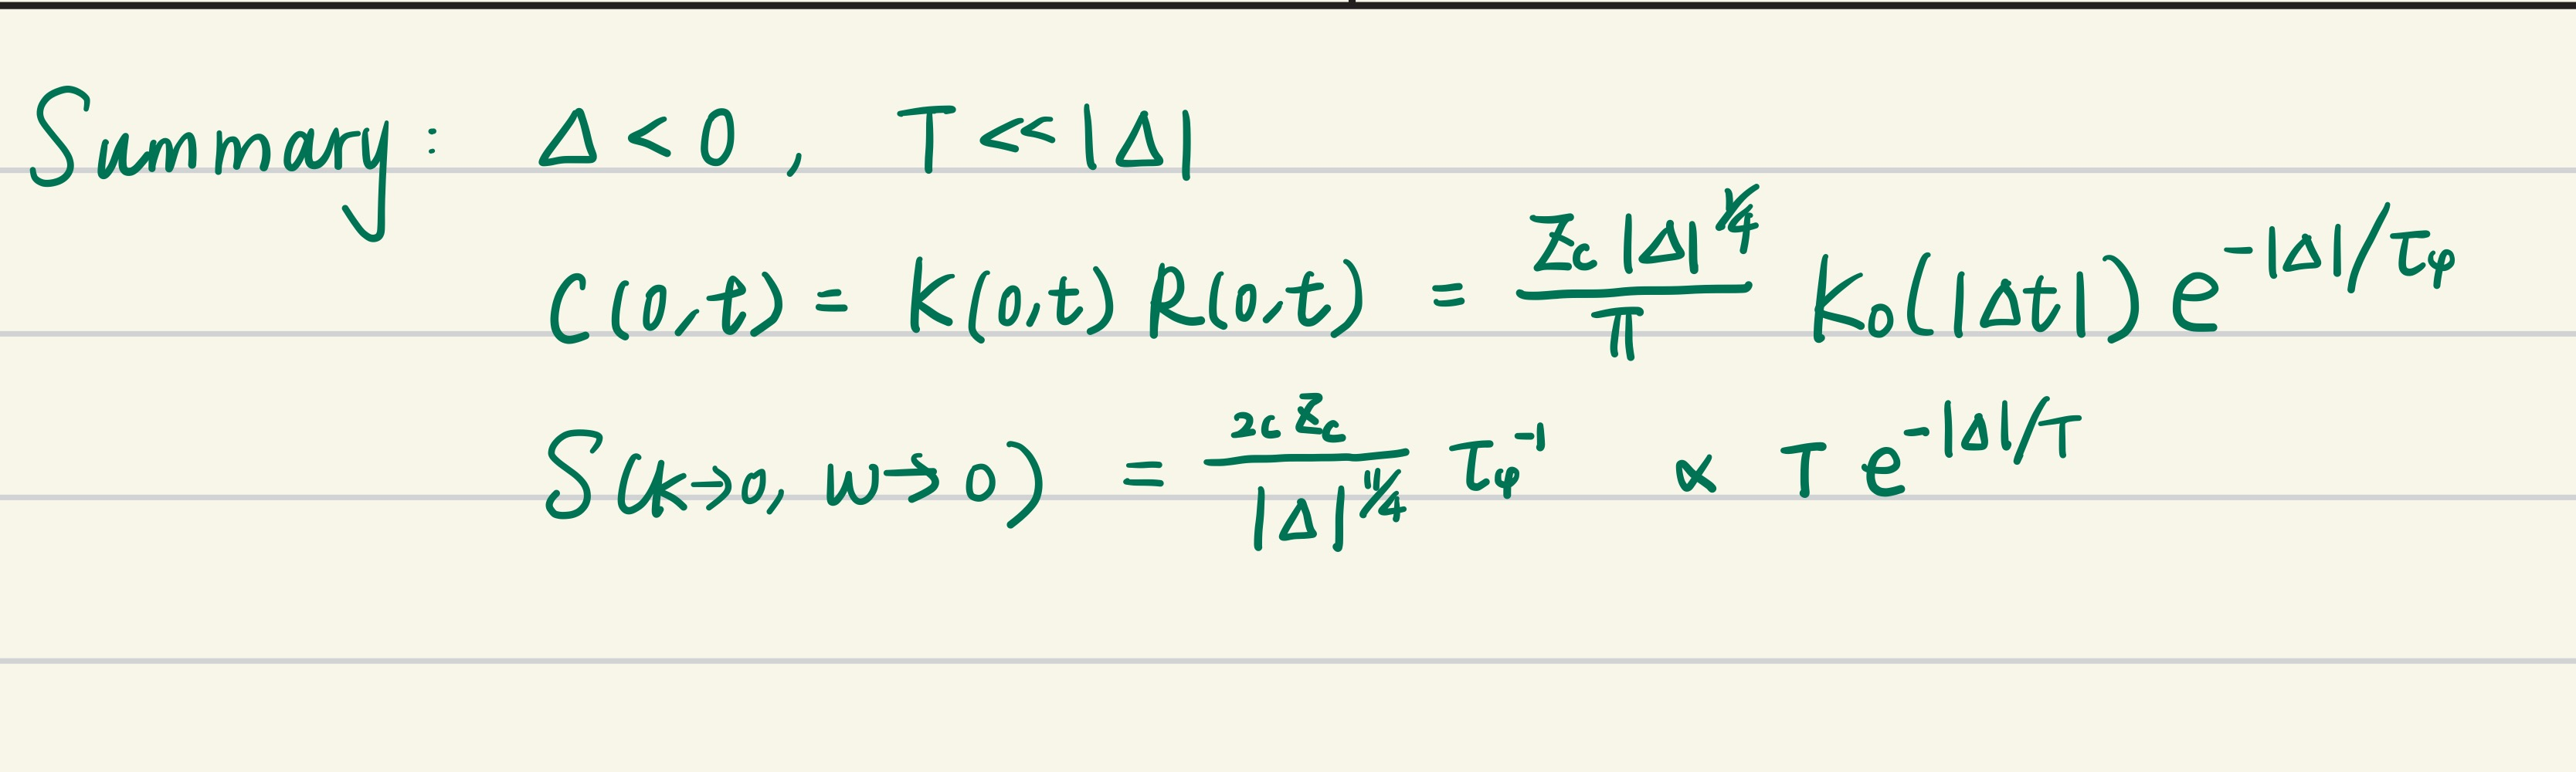 Summary: Δ < 0, T << |Δ|
C(0,t) = K(0,t) R(0,t) = \frac{Z_c |Δ|^{1/4}}{π} K_0(|Δt|) e^{-|Δ|/τ_φ}
S(k→0, ω→0) = \frac{2c Z_c}{|Δ|^{11/4}} τ_φ^{-1} ∝ T e^{-|Δ|/T}